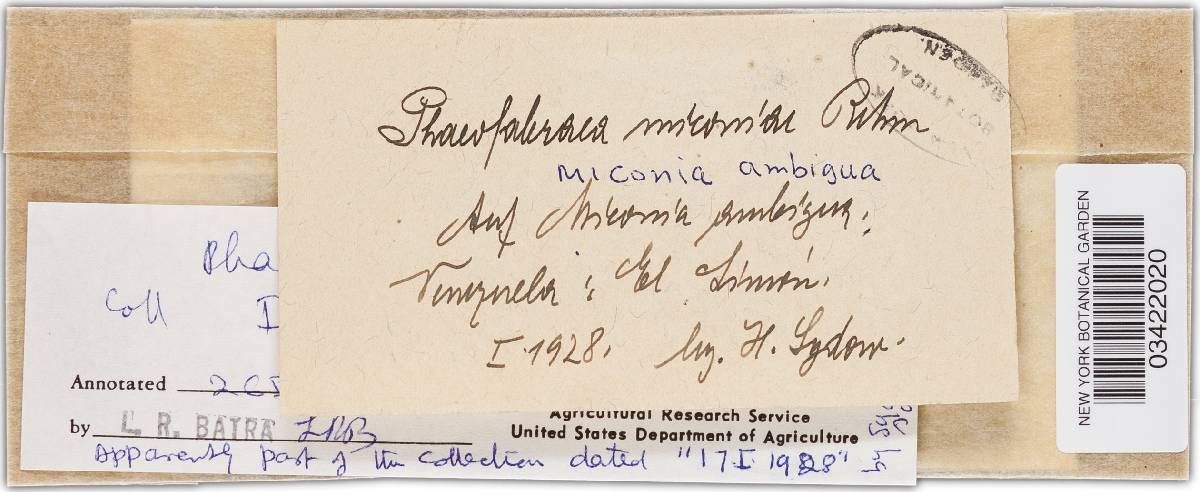 Phaeofabraea miconiae Rehm
Miconia ambigua
Auf Miconia ambigua.
Venezuela: El Limón.
I. 1928. leg. H. Sydow.
Pha
Coll I
Annotated
by L. R. BATRA LRB
Agricultural Research Service
United States Department of Agriculture
Apparently part of the collection dated "17 I 1928"
by
NEW YORK BOTANICAL GARDEN
03422020